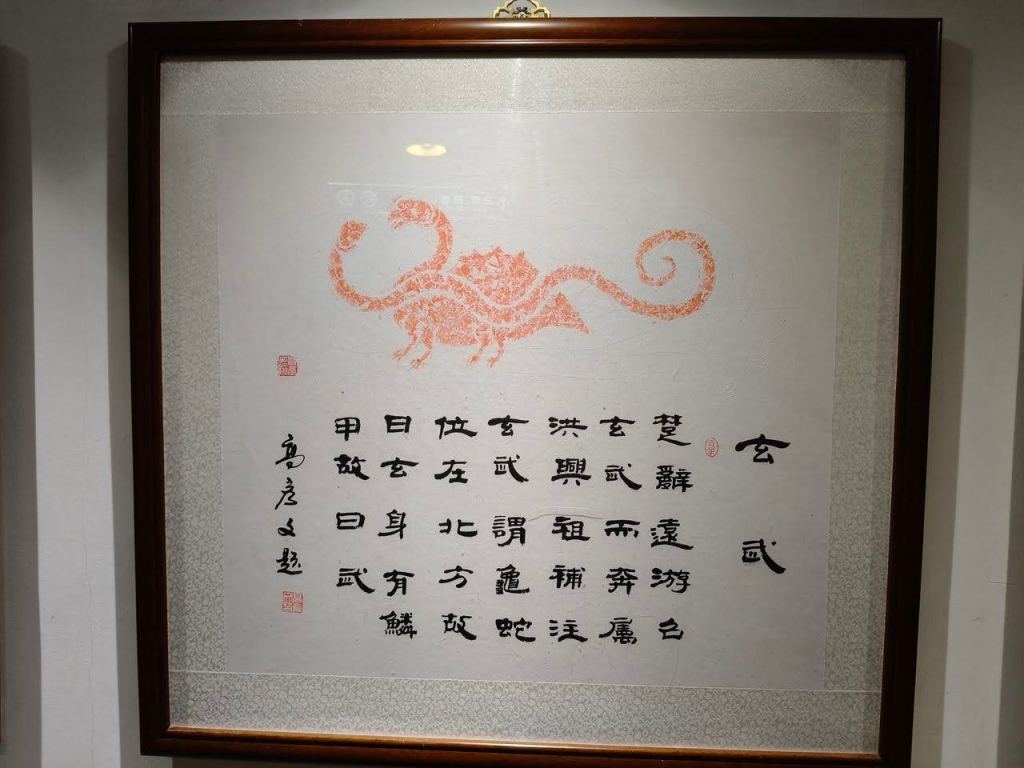 玄武
楚辭遠游召
玄武而奔属
洪興祖補注
玄武謂龜蛇
位左北方故
曰玄身有鱗
甲故曰武
高彦文题